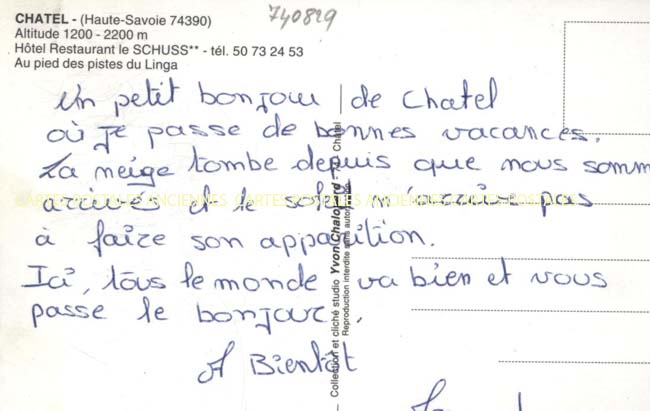 CHATEL - (Haute-Savoie 74390)
Altitude 1200 - 2200 m
Hôtel Restaurant le SCHUSS** - tél. 50 73 24 53
Au pied des pistes du Linga
740829
Un petit bonjour de Chatel
où je passe de bonnes vacances.
La neige tombe depuis que nous somm
arrivés et le soleil pas
à faire son apparition.
Ici, tous le monde va bien et vous
passe le bonjour.
A Bientôt
Collection et cliché studio Yvon Chalop ard - Chatel
Reproduction interdite sans autor
CARTES POSTALES ANCIENNES CARTES POSTALES ANCIENNES CARTES POSTALES